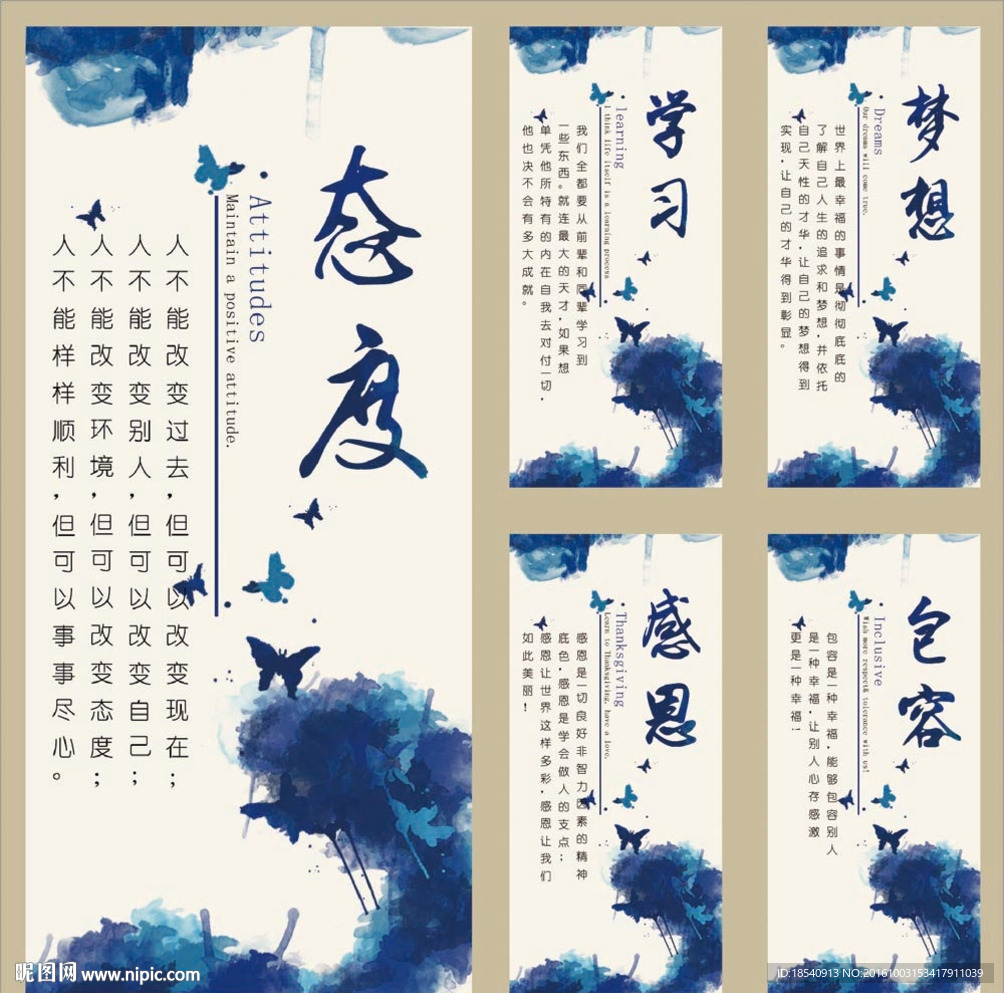 态度
Attitudes
Maintain a positive attitude.
人不能改变过去,但可以改变现在;
人不能改变别人,但可以改变自己;
人不能改变环境,但可以改变态度;
人不能样样顺利,但可以事事尽心。
学习
learning
I think life itself is a learning process
我们全都要从前辈和同辈学习到
一些东西。就连最大的天才,如果想
单凭他所特有的内在自我去对付一切,
他也决不会有多大成就。
梦想
Dreams
Our dreams will come true.
世界上最幸福的事情是彻彻底底的
了解自己人生的追求和梦想,并依托
自己天性的才华,让自己的梦想得到
实现,让自己的才华得到彰显。
感恩
Thanksgiving
Learn to Thanksgiving, have a love.
感恩是一切良好非智力因素的精神
底色,感恩是学会做人的支点;
感恩让世界这样多彩,感恩让我们
如此美丽!
包容
Inclusive
Wish more respect& tolerance with us!
包容是一种幸福,能够包容别人
是一种幸福,让别人心存感激
更是一种幸福!
昵图网 www.nipic.com
ID:18540913 NO:20161003153417911039